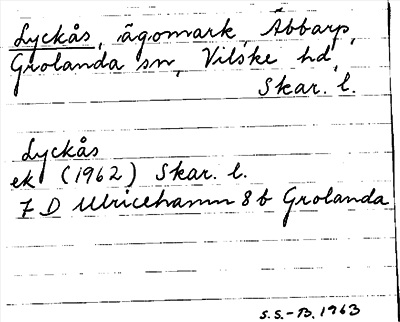 Lyckås, ägomark, Abbarp,
Grolanda sn, Vilske hd,
Skar. l.
Lyckås
ek (1962) Skar. l.
7 D Ulricehamn 8 b Grolanda
S.S.-B. 1963